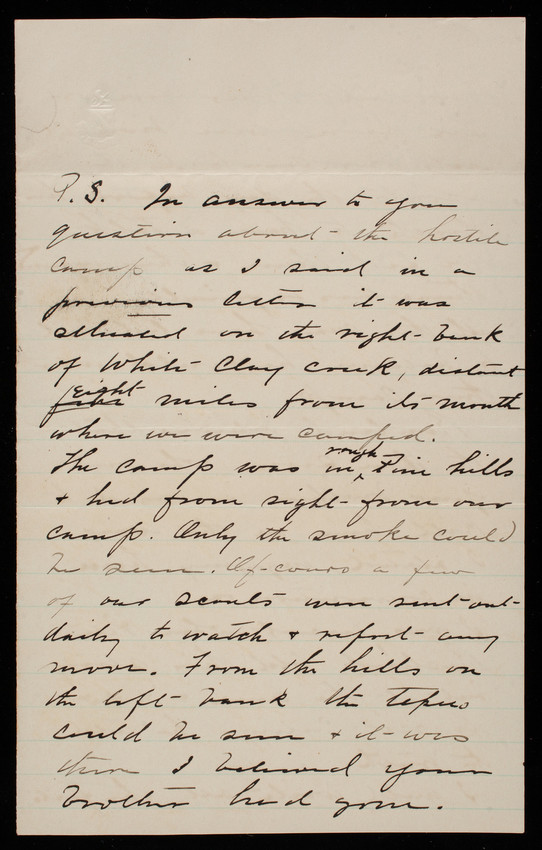 P.S. In answer to your
question about the hostile
camp as I said in a
previous letter it was
situated on the right bank
of White Clay creek, distant
five eight miles from its mouth
where we were camped.
The camp was in rough pine hills
& hid from sight from our
camp. Only the smoke could
be seen. Of cours a few
of our scouts were sent out
daily to watch & report any
move. From the hills on
the left bank the tepees
could be seen & it was
there I believed your
brother had gone.